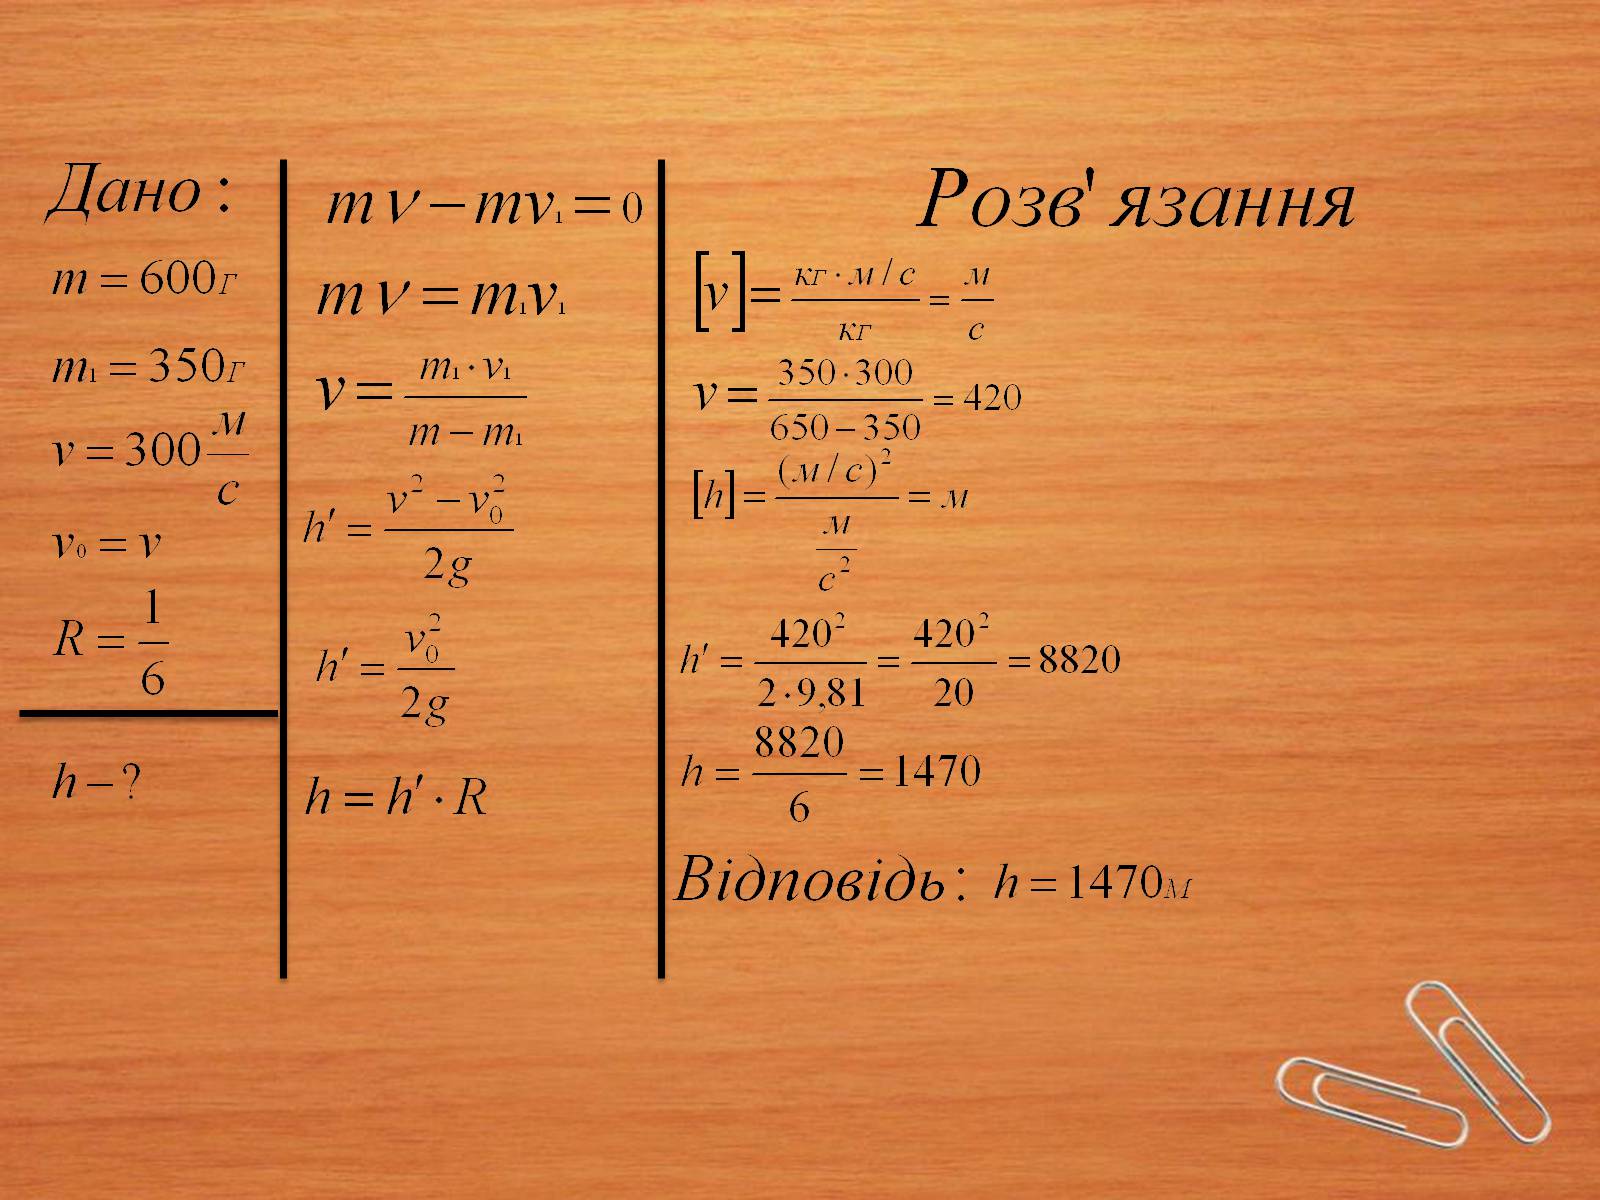 Дано :
m = 600г
m₁ = 350г
v = 300 м/с
v₀ = v
R = 1/6
h – ?
mν – mv₁ = 0
mν = m₁v₁
v = (m₁ · v₁)/(m – m₁)
h′ = (v² – v₀²)/(2g)
h′ = v₀²/(2g)
h = h′ · R
Розв' язання
[v] = (кг · м / с)/кг = м/с
v = (350 · 300)/(650 – 350) = 420
[h] = (м / с)²/(м/с²) = м
h′ = 420²/(2 · 9,81) = 420²/20 = 8820
h = 8820/6 = 1470
Відповідь : h = 1470м